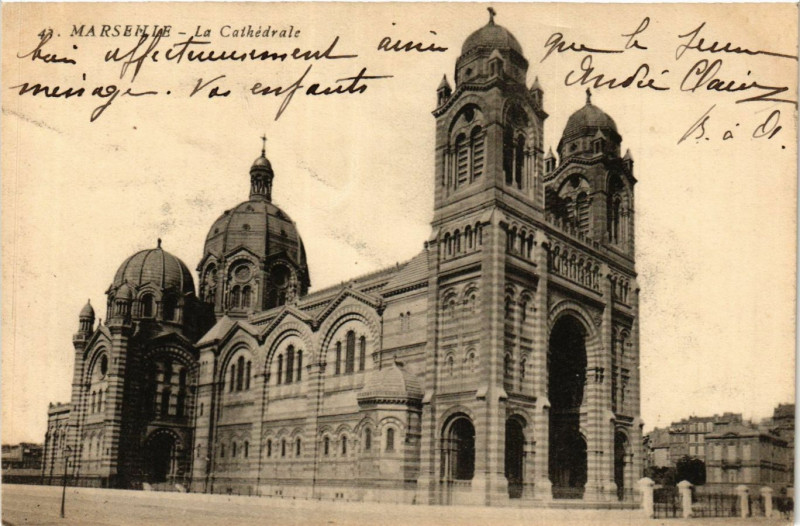 43. MARSEILLE – La Cathédrale
bien affectueusement ainsi que le Jeune
ménage. Vos enfants André Claire
B. à D.